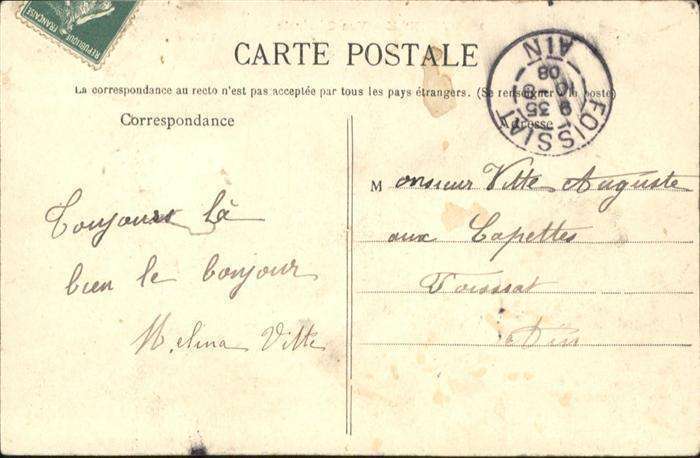 RÉPUBLIQUE FRANÇAISE
CARTE POSTALE
La correspondance au recto n'est pas acceptée par tous les pays étrangers. (Se renseigner à la poste)
Correspondance
Adresse
FOISSIAT
9 35
10 - 9
08
AIN
Toujours là
bien le bonjour
Melina Vitte
Monsieur Vitte Auguste
aux Capettes
Foissiat
Ain